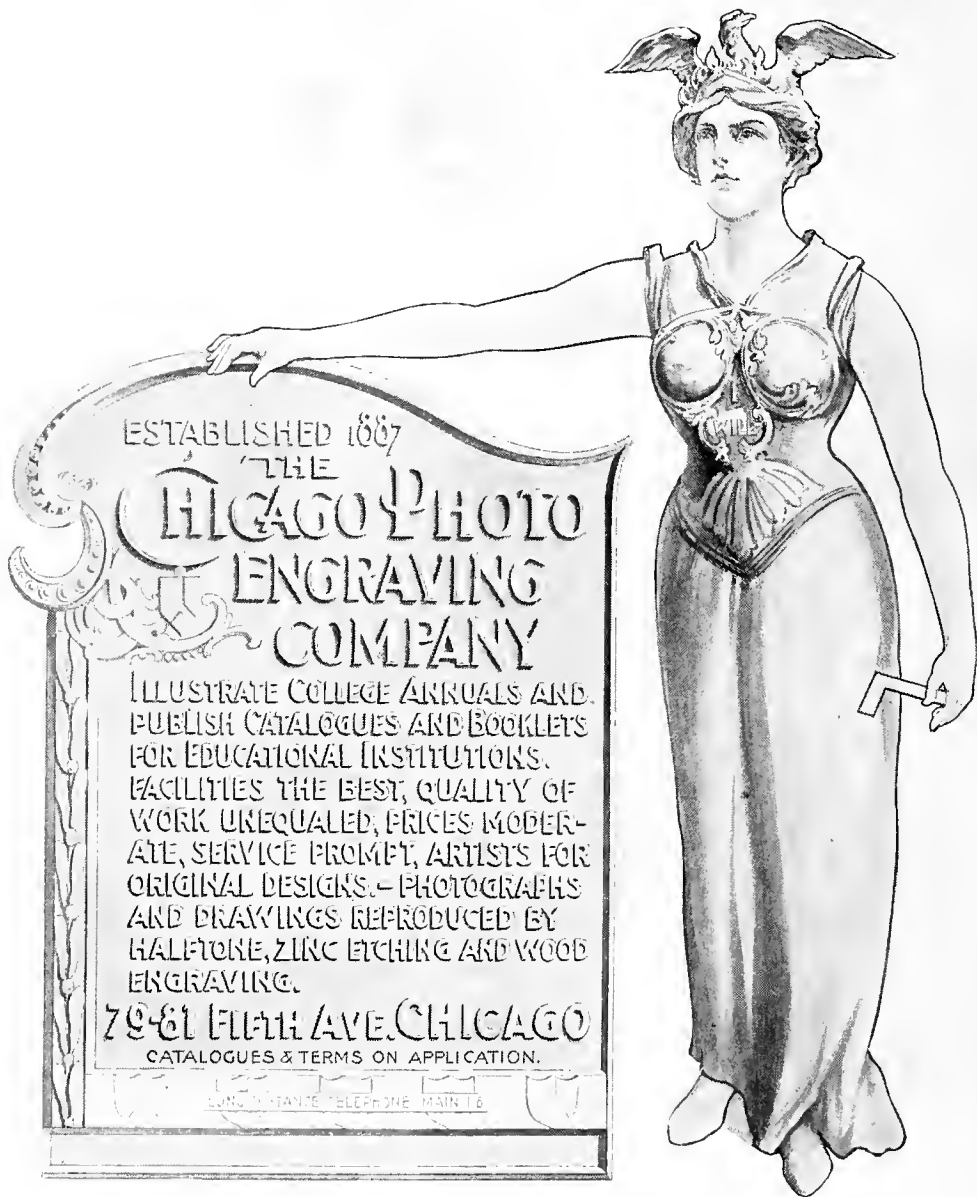 ESTABLISHED 1887
THE
CHICAGO PHOTO
ENGRAVING
COMPANY
ILLUSTRATE COLLEGE ANNUALS AND
PUBLISH CATALOGUES AND BOOKLETS
FOR EDUCATIONAL INSTITUTIONS.
FACILITIES THE BEST, QUALITY OF
WORK UNEQUALED, PRICES MODER-
ATE, SERVICE PROMPT, ARTISTS FOR
ORIGINAL DESIGNS.- PHOTOGRAPHS
AND DRAWINGS REPRODUCED BY
HALFTONE, ZINC ETCHING AND WOOD
ENGRAVING.
79-81 FIFTH AVE. CHICAGO
CATALOGUES & TERMS ON APPLICATION.
LONG DISTANCE TELEPHONE MAIN
I WILL